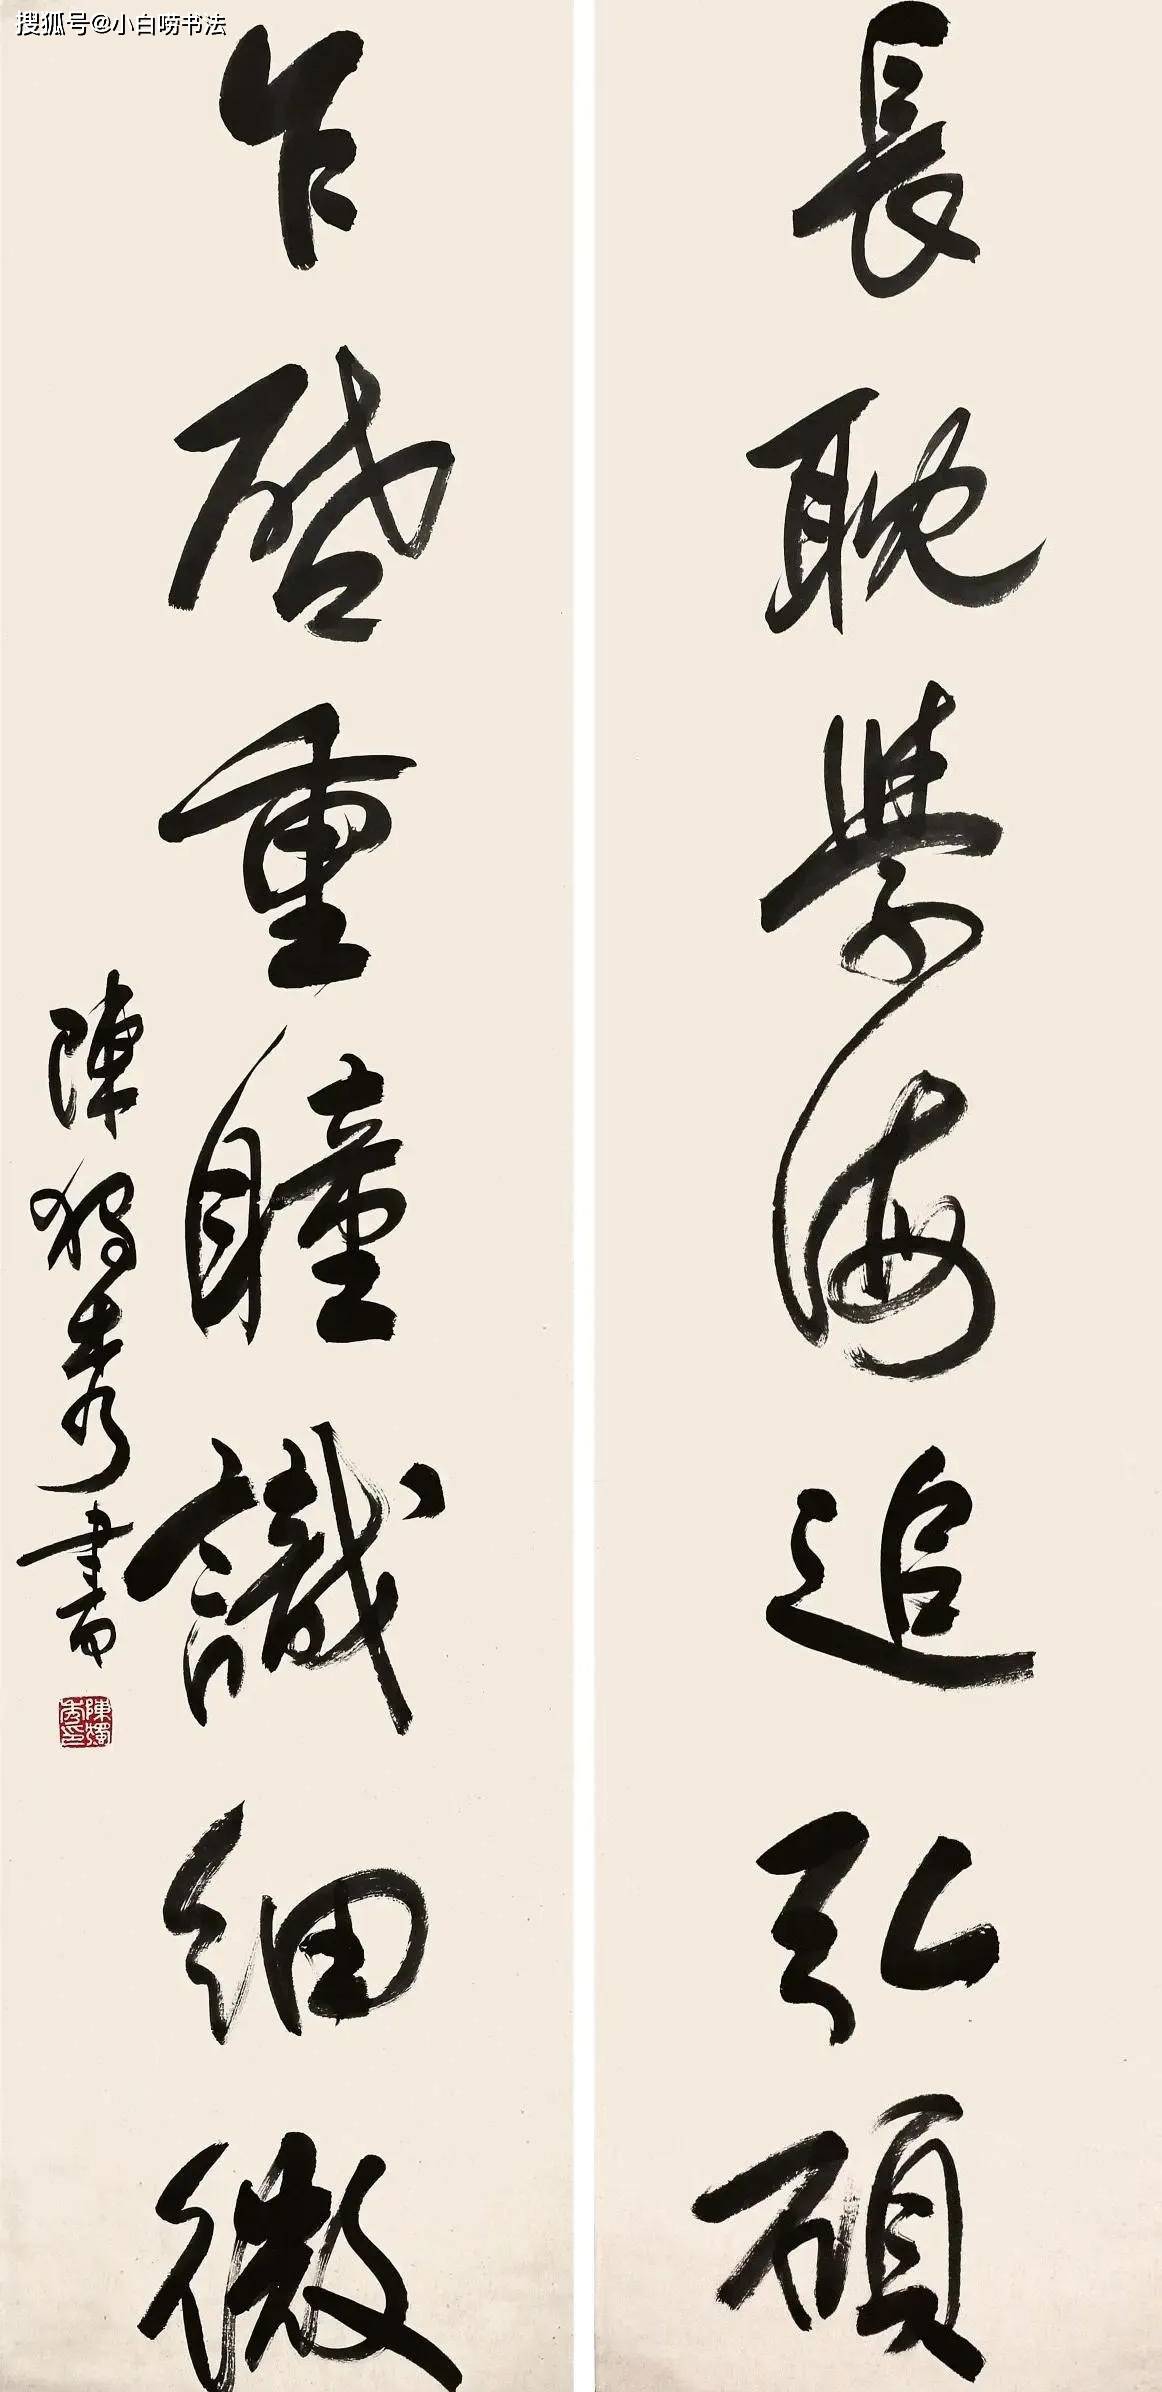 搜狐号@小白唠书法
長耽學海追弘碩
乍啓重瞳識細微
陳獨秀書
陳獨秀印